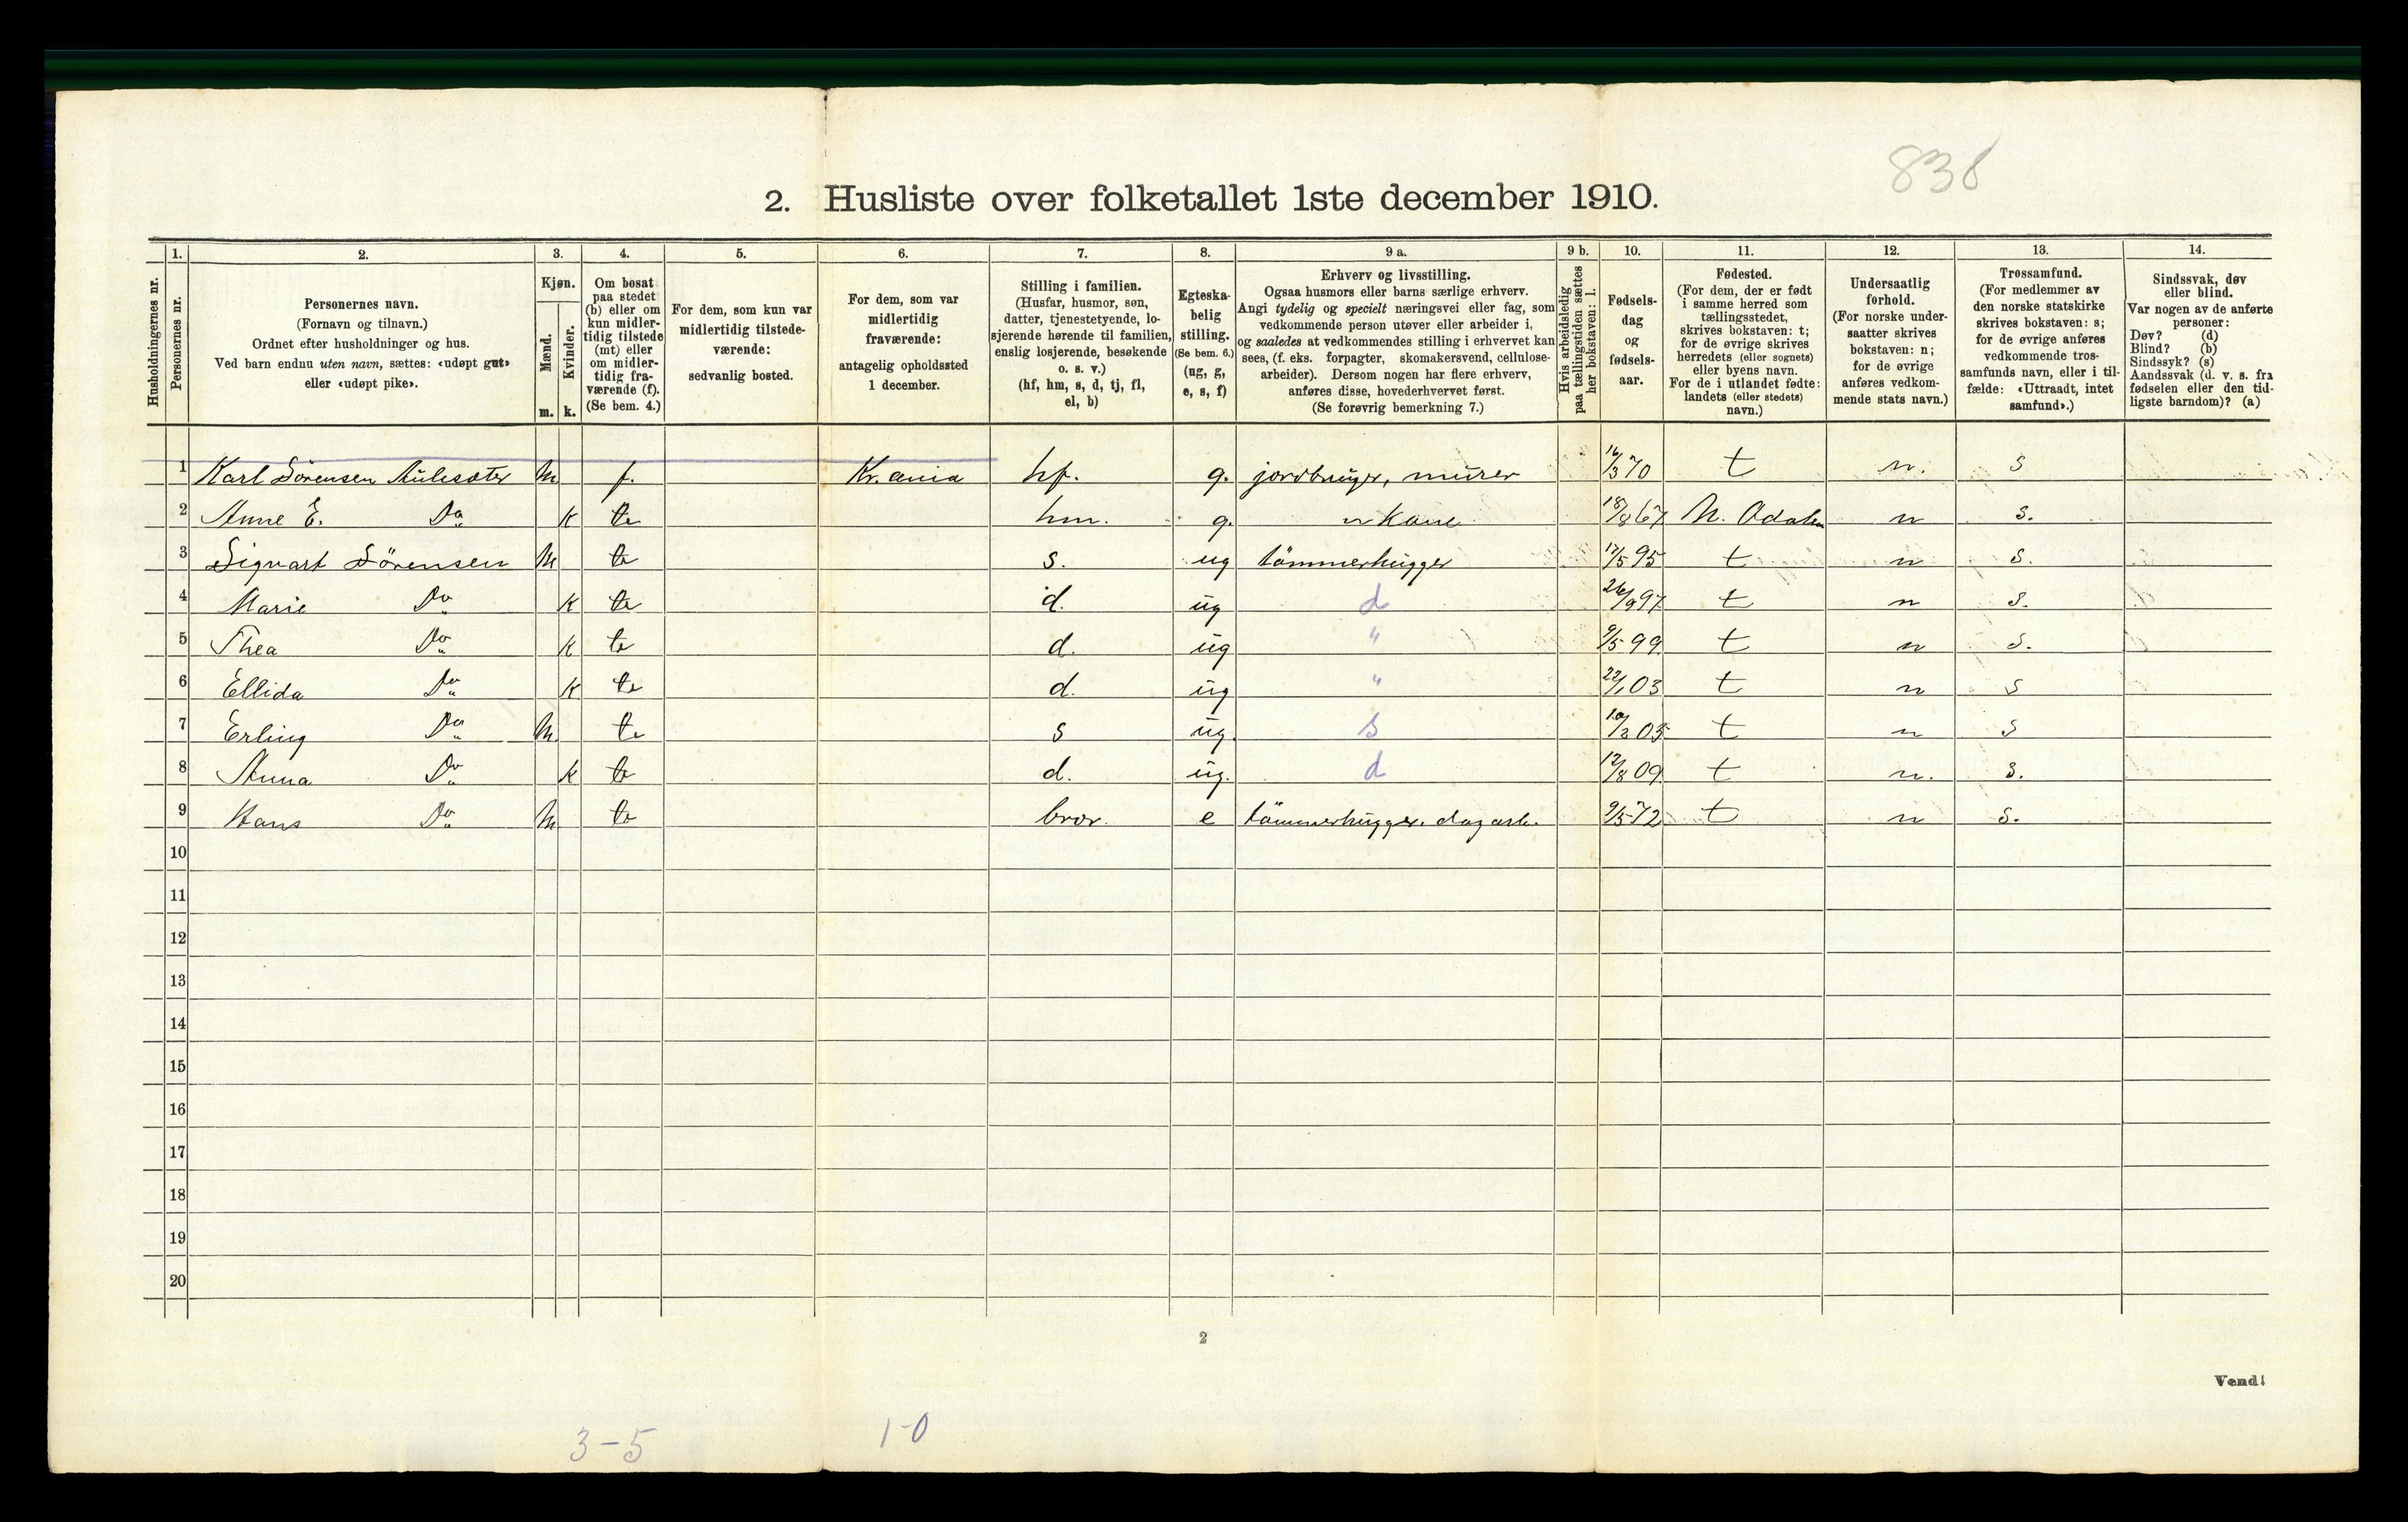 838
2. Husliste over folketallet 1ste december 1910.
1. 2. 3. 4. 5. 6. 7. 8. 9 a. 9 b. 10. 11. 12. 13. 14.
Husholdningernes nr.
Personernes nr.
Personernes navn.
(Fornavn og tilnavn.)
Ordnet efter husholdninger og hus.
Ved barn endnu uten navn, sættes: «udøpt gut»
eller «udøpt pike».
Kjøn.
Mænd.
Kvinder.
m. k.
Om bosat
paa stedet
(b) eller om
kun midler-
tidig tilstede
(mt) eller
om midler-
tidig fra-
værende (f).
(Se bem. 4.)
For dem, som kun var
midlertidig tilstede-
værende:
sedvanlig bosted.
For dem, som var
midlertidig
fraværende:
antagelig opholdssted
1 december.
Stilling i familien.
(Husfar, husmor, søn,
datter, tjenestetyende, lo-
sjerende hørende til familien,
enslig losjerende, besøkende
o. s. v.)
(hf, hm, s, d, tj, fl,
el, b)
Egteska-
belig
stilling.
(Se bem. 6.)
(ug, g,
e, s, f)
Erhverv og livsstilling.
Ogsaa husmors eller barns særlige erhverv.
Angi tydelig og specielt næringsvei eller fag, som
vedkommende person utøver eller arbeider i,
og saaledes at vedkommendes stilling i erhvervet kan
sees, (f. eks. forpagter, skomakersvend, cellulose-
arbeider). Dersom nogen har flere erhverv,
anføres disse, hovederhvervet først.
(Se forøvrig bemerkning 7.)
Hvis arbeidsledig
paa tællingstiden sættes
her bokstaven: l.
Fødsels-
dag
og
fødsels-
aar.
Fødested.
(For dem, der er født
i samme herred som
tællingsstedet,
skrives bokstaven: t;
for de øvrige skrives
herredets (eller sognets)
eller byens navn.
For de i utlandet fødte:
landets (eller stedets)
navn.)
Undersaatlig
forhold.
(For norske under-
saatter skrives
bokstaven: n;
for de øvrige
anføres vedkom-
mende stats navn.)
Trossamfund.
(For medlemmer av
den norske statskirke
skrives bokstaven: s;
for de øvrige anføres
vedkommende tros-
samfunds navn, eller i til-
fælde: «Uttraadt, intet
samfund».)
Sindssvak, døv
eller blind.
Var nogen av de anførte
personer:
Døv? (d)
Blind? (b)
Sindssyk? (s)
Aandssvak (d. v. s. fra
fødselen eller den tid-
ligste barndom)? (a)
1 Karl Sørensen m f. Kr.ania hf. g. jordbruger, murer 16/3 70 t n. s
2 Anne E. Do k hm. g. Kone 18/8 67 N. Odalen n s.
3 Sigvart Sörensen m s. ug tömmerhugger 17/5 95 t n s.
4 Marie Do k d. ug d 26/9 97 t n s.
5 Thea Do k d. ug " 9/5 99 t n s.
6 Ellida Do k d. ug " 22/1 03 t n s
7 Erling Do m. s ug. s 05 t n s
8 Anna Do k d. ug. d 12/8 09 t n. s.
9 Hans Do m. bror. e tömmerhugger. dagarb. 9/5 72 t n s.
10
11
12
13
14
15
16
17
18
19
20
2
Vend!
3-5 1-0